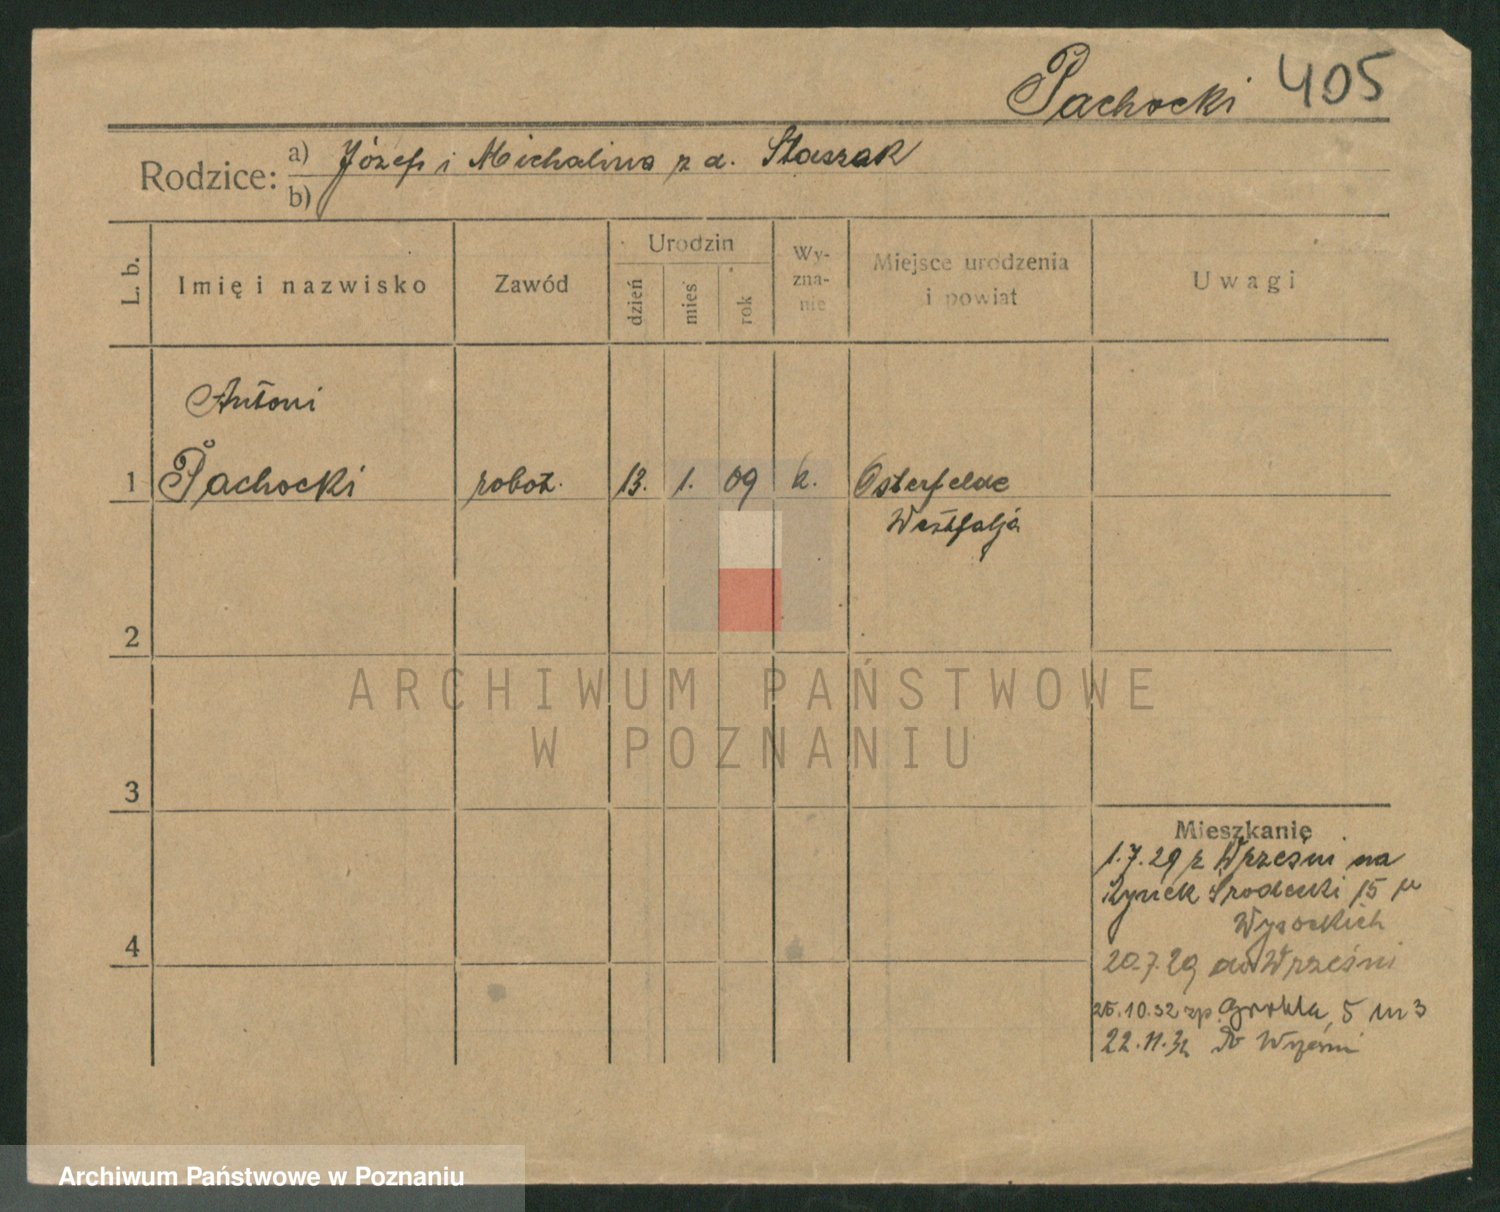 Pachocki 405
Rodzice: a) Józef i Michalina z d. Staszak
b)
L. b.
Imię i nazwisko
Zawód
Urodzin
dzień
mies
rok
Wy-
zna-
nie
Miejsce urodzenia
i powiat
Uwagi
Antoni
1 Pachocki robot. 13. 1. 09 k. Osterfelde
Westfalja
2
3
4
ARCHIWUM PAŃSTWOWE
W POZNANIU
Mieszkanie
1.7.29 z Wrześni na
Rynek Środecki 15 u
Wysockich
20.7.29 do Wrześni
25.10.32 zp. Grobla 5 m 3
22.11.32 do Wrześni
Archiwum Państwowe w Poznaniu